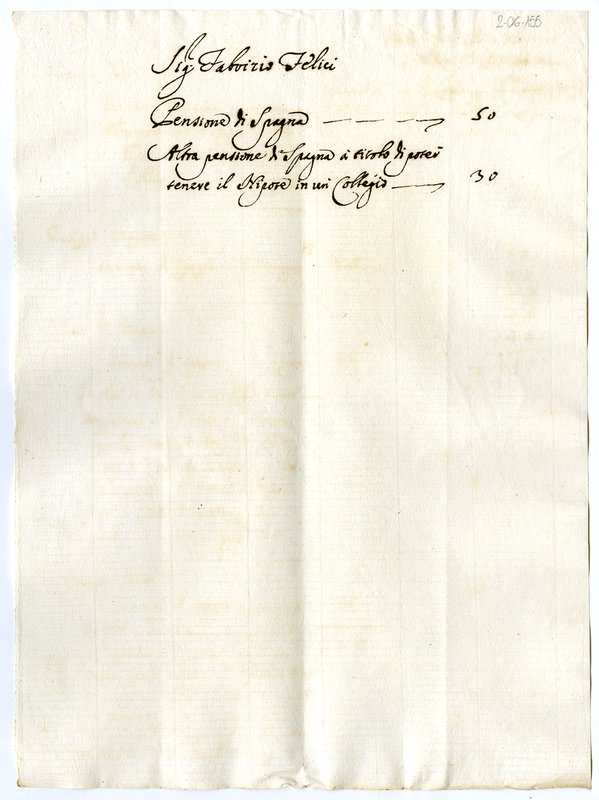 2-06-155
Sig. Fabritio Felici
Pensione di Spagna 50
Altra pensione di Spagna à titolo di poter
tenere il Nipote in un Collegio 30